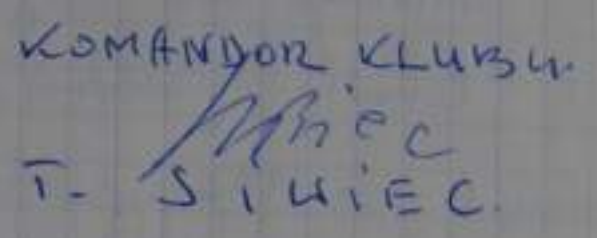 KOMANDOR KLUBU.
T. SIWIEC.